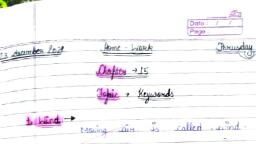 Date : / /
Page
december Home - Work Thrusday
Chapter → 15
Topic → Keywords
1. Wind →
Moving air is called wind.